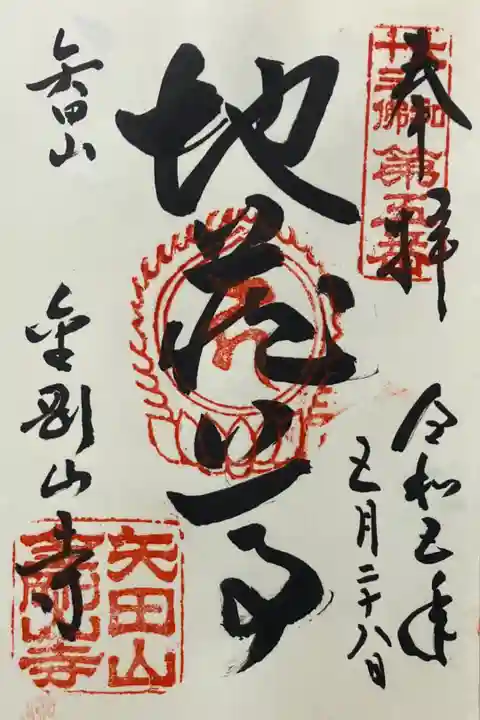 奉拝
大和
十三佛
第五番
令和五年
五月二十八日
地蔵尊
矢田山
金剛山寺
矢田山
金剛山寺